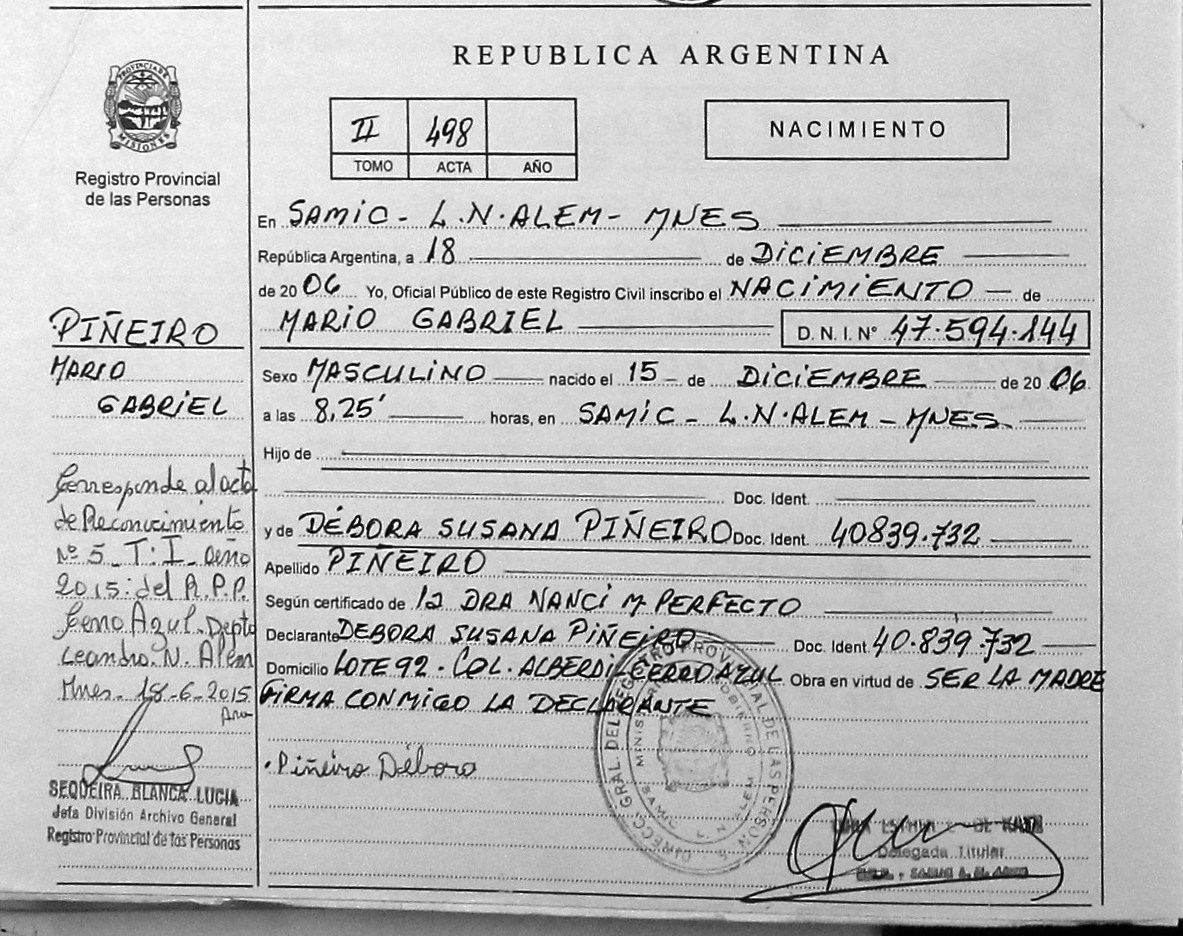 REPUBLICA ARGENTINA
PROVINCIA DE
MISIONES
Registro Provincial
de las Personas
II 498
TOMO ACTA AÑO
NACIMIENTO
En SAMIC - L.N.ALEM - MNES
República Argentina, a 18 de DICIEMBRE
de 2006 Yo, Oficial Público de este Registro Civil inscribo el NACIMIENTO de
MARIO GABRIEL D.N.I.N° 47.594.144
PIÑEIRO
MARIO
GABRIEL
Sexo MASCULINO nacido el 15 de DICIEMBRE de 2006
a las 8,25' horas, en SAMIC - L.N.ALEM - MNES.
Hijo de
Doc. Ident.
y de DÉBORA SUSANA PIÑEIRO Doc. Ident. 40839.732
Apellido PIÑEIRO
Según certificado de la DRA NANCI M. PERFECTO
Declarante DEBORA SUSANA PIÑEIRO Doc. Ident. 40.839.732
Domicilio LOTE 92 - COL. ALBERDI CERRO AZUL Obra en virtud de SER LA MADRE
FIRMA CONMIGO LA DECLARANTE
Piñeiro Débora
Corresponde al acta
de Reconocimiento
N° 5 T: I año
2015 del R.P.P.
Cerro Azul. Depto
Leandro N. Alem
Mnes. 18-6-2015
SEQUEIRA BLANCA LUCIA
Jefa División Archivo General
Registro Provincial de las Personas
DIRECC. GRAL. DEL REGISTRO PROVINCIAL DE LAS PERSONAS
MINISTERIO GOBIERNO
SAMIC L. N. ALEM
DE KATZ
Delegada Titular